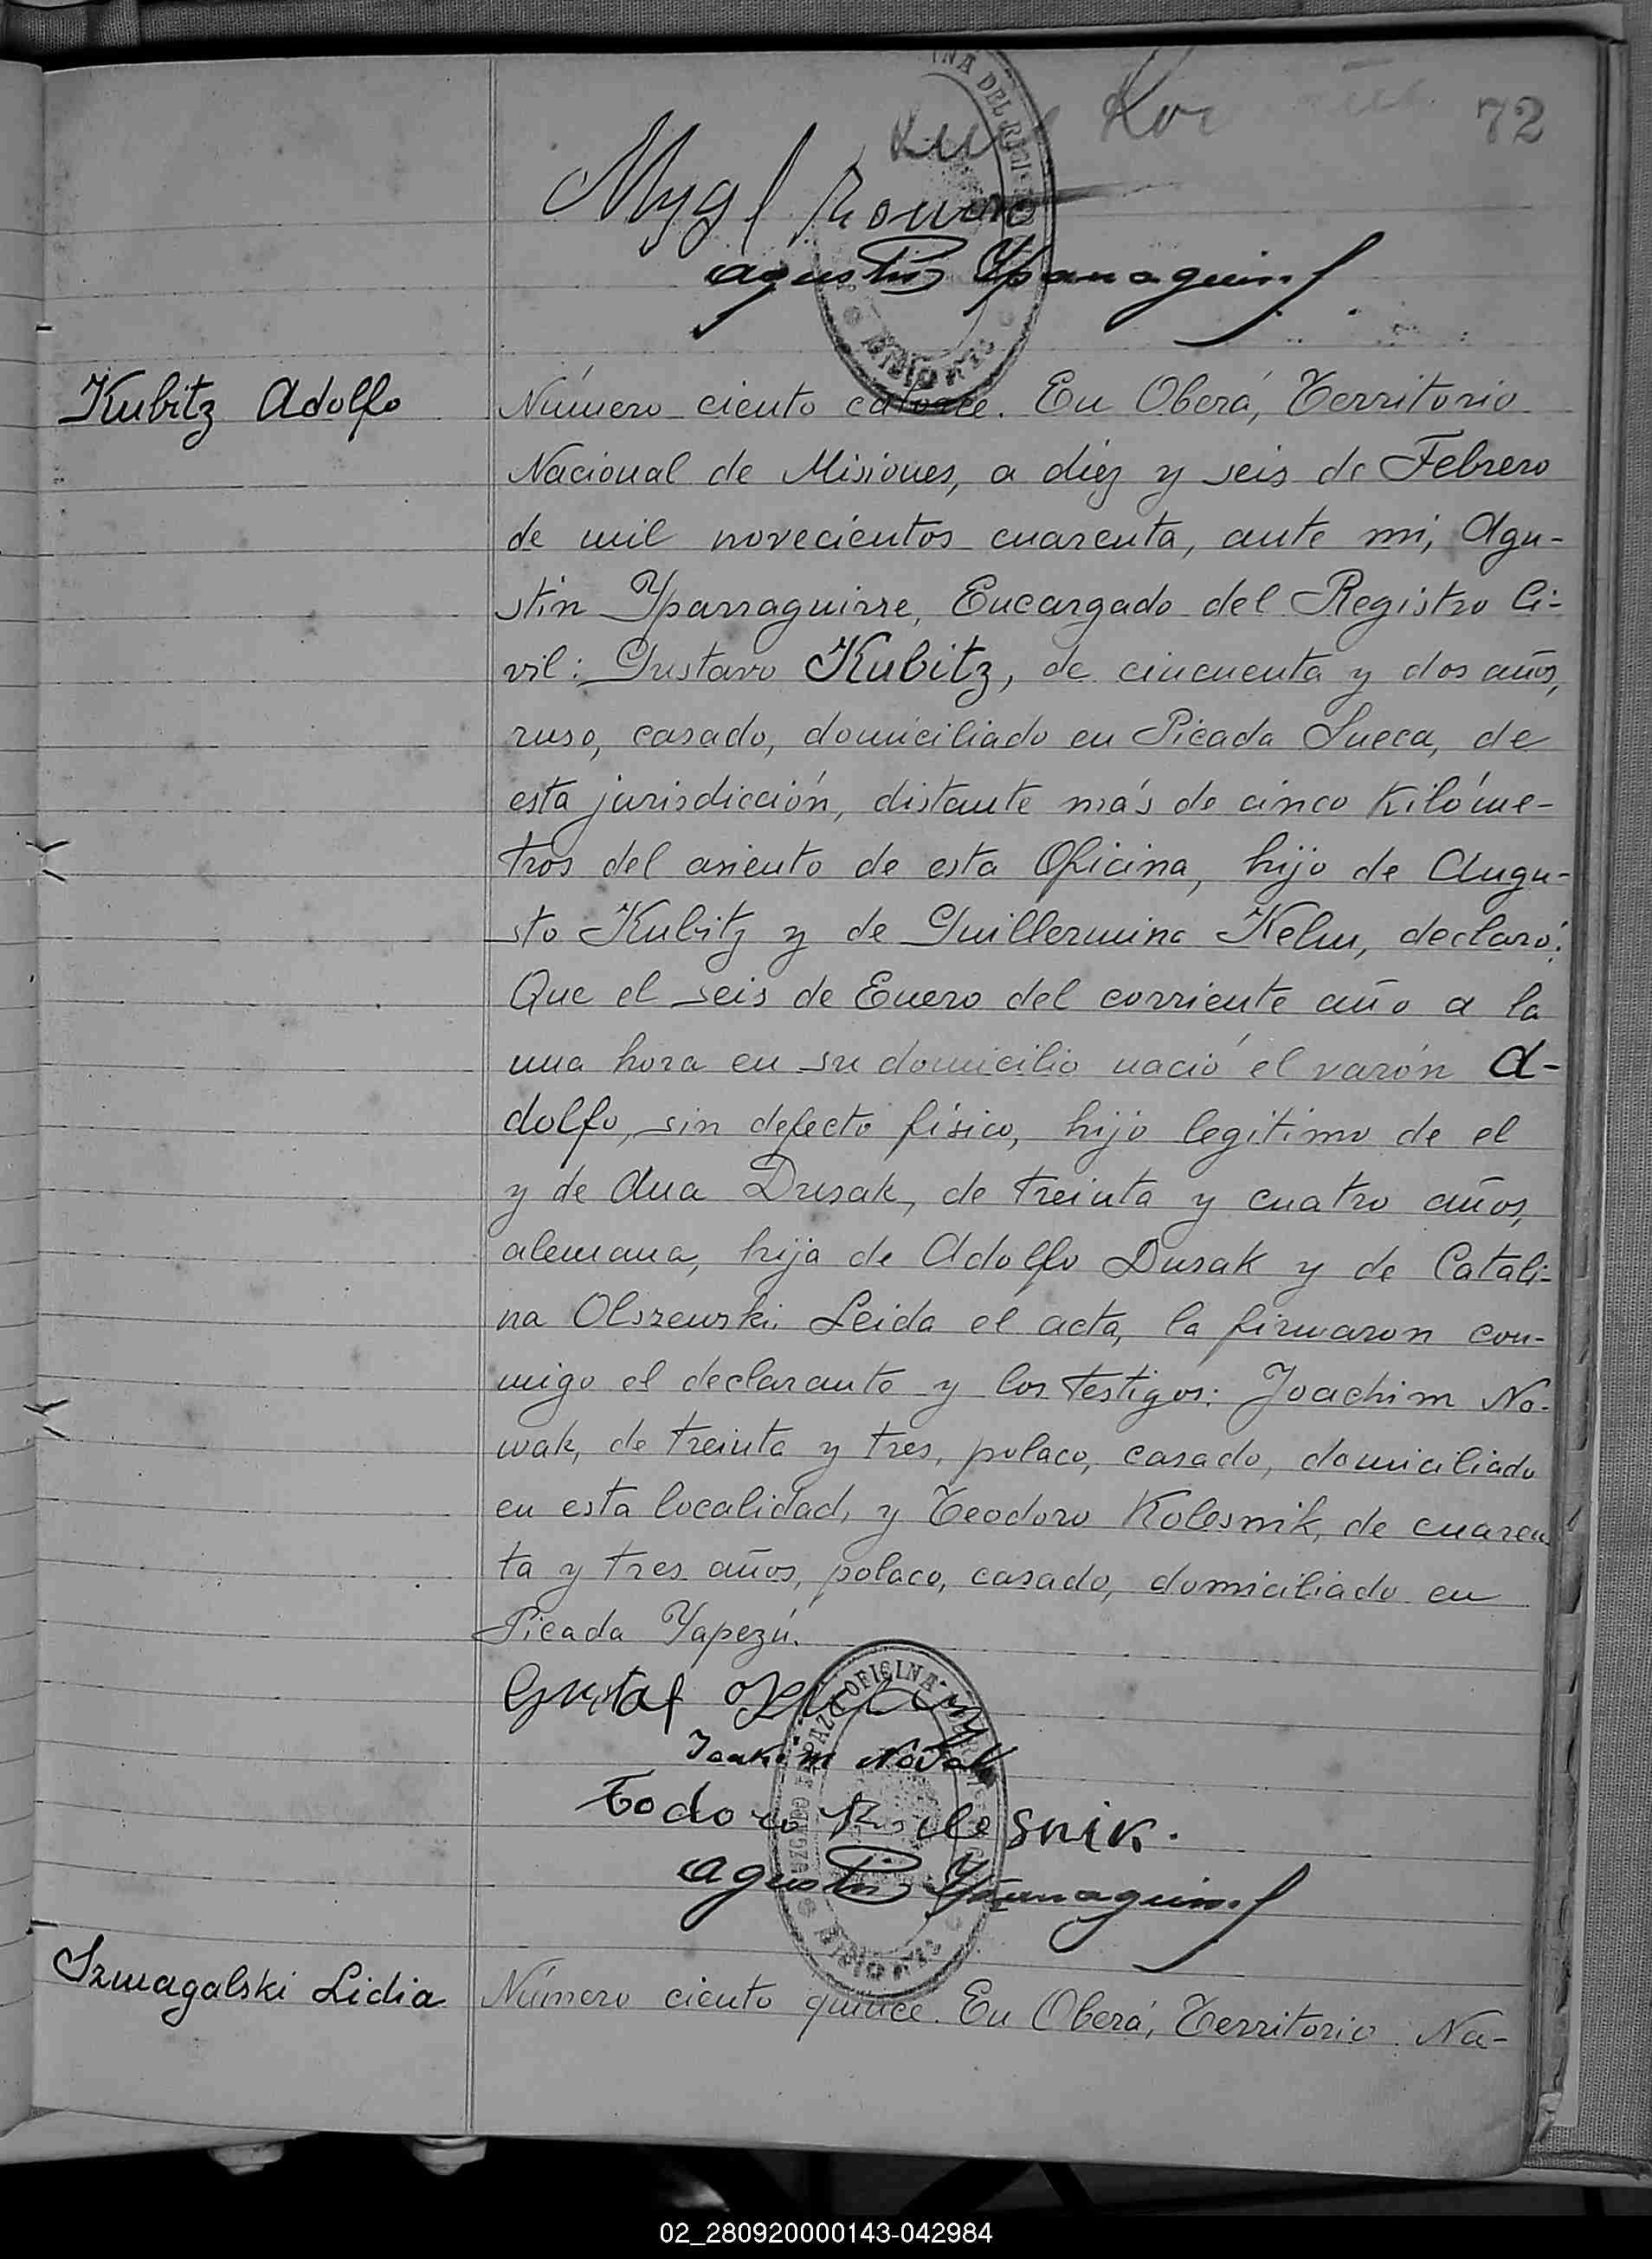 72
Agustin Yparraguirre
Kubitz Adolfo
Número ciento catorce. En Oberá, Territorio
Nacional de Misiones, a diez y seis de Febrero
de mil novecientos cuarenta, ante mi, Agu-
stin Yparraguirre, Encargado del Registro Ci-
vil: Gustavo Kubitz, de cincuenta y dos años,
ruso, casado, domiciliado en Picada Sueca, de
esta jurisdicción, distante más de cinco kilóme-
tros del asiento de esta Oficina, hijo de Augu-
sto Kubitz y de Guillermina Kelm, declaró:
Que el seis de Enero del corriente año a la
una hora en su domicilio nació el varón A-
dolfo, sin defecto físico, hijo legitimo de el
y de Ana Dusak, de treinta y cuatro años,
alemana, hija de Adolfo Dusak y de Catali-
na Olszewski. Leida el acta, la firmaron con-
migo el declarante y los testigos: Joachim No-
wak, de treinta y tres, polaco, casado, domiciliado
en esta localidad, y Teodoro Kolesnik, de cuaren
ta y tres años, polaco, casado, domiciliado en
Picada Yapezú.
Gustaf
OFICINA
Todoro Kolesnik.
Agustin Yparraguirre
MISIONES
Szmagalski Lidia
Número ciento quince. En Oberá, Territorio Na-
02_280920000143-042984